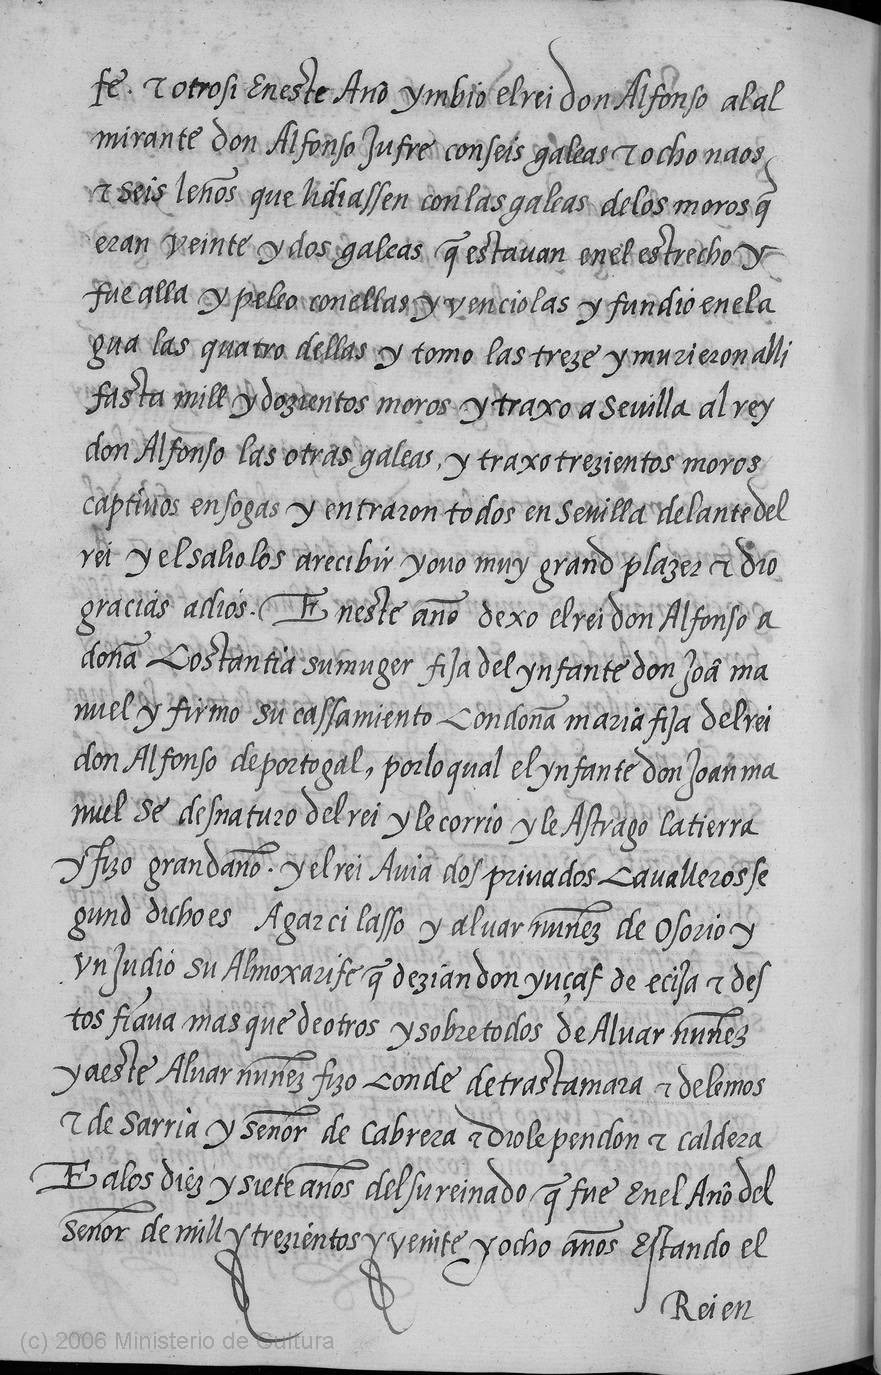 fe. τ otrosi Eneste Año ymbió el rei don Alfonso al al
mirante don Alfonso Jufre con seis galeas τ ocho naos
τ seis leños que lidiassen con las galeas de los moros q̃
eran veinte y dos galeas q̃ estauan en el estrecho y
fue alla y peleo con ellas y venciolas y fundio en el a
gua las quatro dellas y tomo las treze y murieron alli
fasta mill y dozientos moros y traxo a Sevilla al rey
don Alfonso las otras galeas, y traxo trezientos moros
captiuos en sogas y entraron todos en Seuilla delante del
rei y el salio los a recibir y ouo muy grand plazer τ dio
gracias a dios. Eneste año dexo el rei don Alfonso a
doña Costantia su muger fija del ynfante don Joã ma
nuel y firmo su cassamiento con doña maria fija del rei
don Alfonso de portogal, por lo qual el ynfante don Joan ma
nuel se desnaturo del rei y le corrio y le Astrago la tierra
y fizo gran daño. y el rei Auia dos priuados Caualleros se
gund dicho es A garci lasso y aluar nuñez de Osorio y
vn Judio su Almoxarife q̃ dezian don yuçaf de ecija τ des
tos fiaua mas que de otros y sobre todos de Aluar nuñez
y a este Aluar nuñez fizo conde de trastamara τ de lemos
τ de Sarria y señor de Cabrera τ diole pendon τ caldera
E a los diez y siete años del su reinado q̃ fue Enel Año del
señor de mill y trezientos y veinte y ocho años Estando el
Rei en
(c) 2006 Ministerio de Cultura